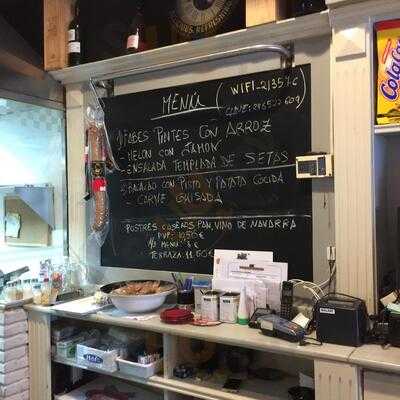 MENÚ
(WIFI-21357C)
1) FABES PINTES CON ARROZ
- MELON CON JAMON
- ENSALADA TEMPLADA DE SETAS
2) BACALAO CON PISTO Y PATATA COCIDA
- CARNE GUISADA
POSTRES CASEROS PAN, VINO DE NAVARRA
½ MENÚ 8 €
TERRAZA 11.50€
ColaCao